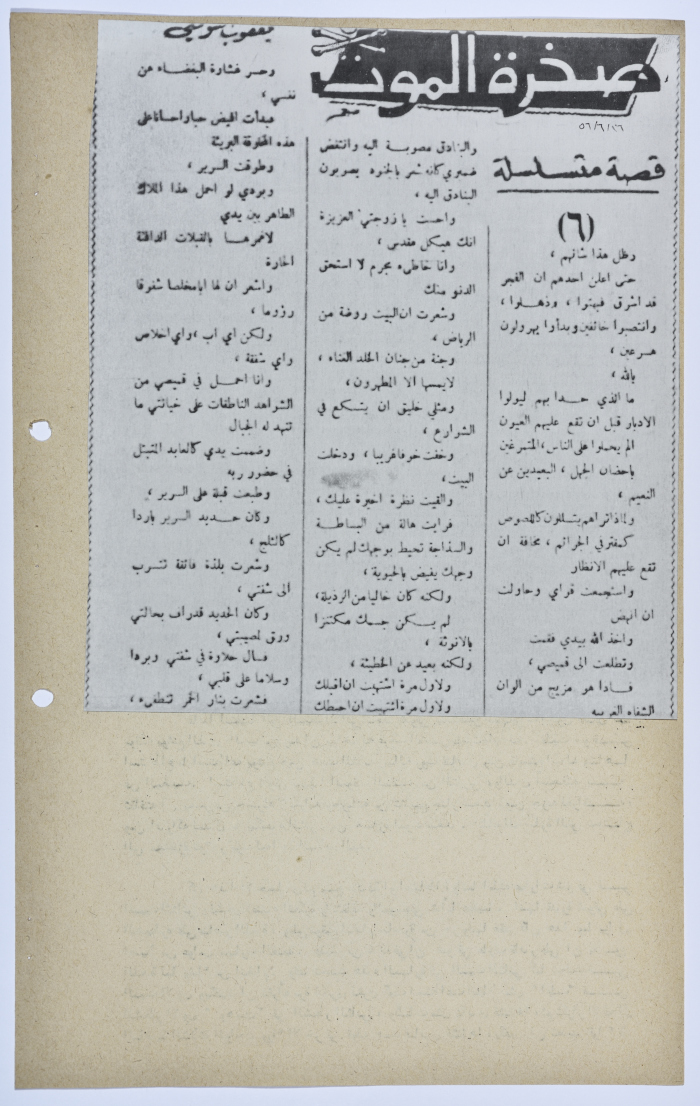 صخرة الموت
٥٦/٦/١٦
قصة متسلسلة
(٦)
وظل هذا شأنهم ،
حتى اعلن احدهم ان الفجر
قد اشرق فبهتوا ، وذهلوا ،
وانتصبوا خائفين وبدأوا يهرولون
هرعين ،
بالله ،
ما الذي حدا بهم ليولوا
الادبار قبل ان تقع عليهم العيون
الم يحملوا على الناس، المتمرغين
باحضان الجهل ، البعيدين عن
النعيم ،
ولماذا تراهم يتسللون كاللصوص
كمقترفي الجرائم ، مخافة ان
تقع عليهم الانظار
واستجمعت قواي وحاولت
ان انهض
واخذ الله بيدي فقمت
وتطلعت الى قميصي ،
فاذا هو مزيج من الوان
الشفاه
والبنادق مصوبة اليه وانتفض
ضميري كأنه شعر بالجنود يصوبون
البنادق اليه ،
واحست يا زوجتي العزيزة
انك هيكل مقدس ،
وانا خاطىء مجرم لا استحق
الدنو منك
وشعرت ان البيت روضة من
الرياض ،
وجنة من جنان الخلد الغناء ،
لا يمسها الا المطهرون ،
ومثلي خليق ان يتسكع في
الشوارع ،
وخفت خوفا غريبا ، ودخلت
البيت ،
والقيت نظرة اخيرة عليك ،
فرأيت هالة من البساطة
والسذاجة تحيط بوجهك لم يكن
وجهك يفيض بالحيوية ،
ولكنه كان خاليا من الرذيلة ،
لم يكن جسمك مكتنزا
بالانوثة ،
ولكنه بعيد عن الخطيئة ،
ولاول مرة اشتهيت ان اقبلك
ولاول مرة اشتهيت ان احيطك
يعقوب
وحسر غشارة البغضاء عن
نفسي ،
فبدأت افيض حبا واحسانا على
هذه المخلوقة البريئة
وطوقت السرير ،
وبودي لو احمل هذا الملاك
الطاهر بين يدي
لاغمرها بالقبلات الدافئة
الحارة
واشعر ان لها ابا مخلصا شفوقا
رؤوما ،
ولكن اي اب ، واي اخلاص
واي شفقة ،
وانا احمل في قميصي من
الشواهد الناطقات على خيانتي ما
تنهد له الجبال
وضممت يدي كالعابد المتبتل
في حضور ربه
وطبعت قبلة على السرير ،
وكان حديد السرير باردا
كالثلج ،
وشعرت بلذة فائقة تتسرب
الى شفتي ،
وكان الحديد قد راف بحالتي
ورق لمصيبتي ،
فسال حلاوة في شفتي وبردا
وسلاما على قلبي ،
فشعرت بنار الخمر تنطفىء ،